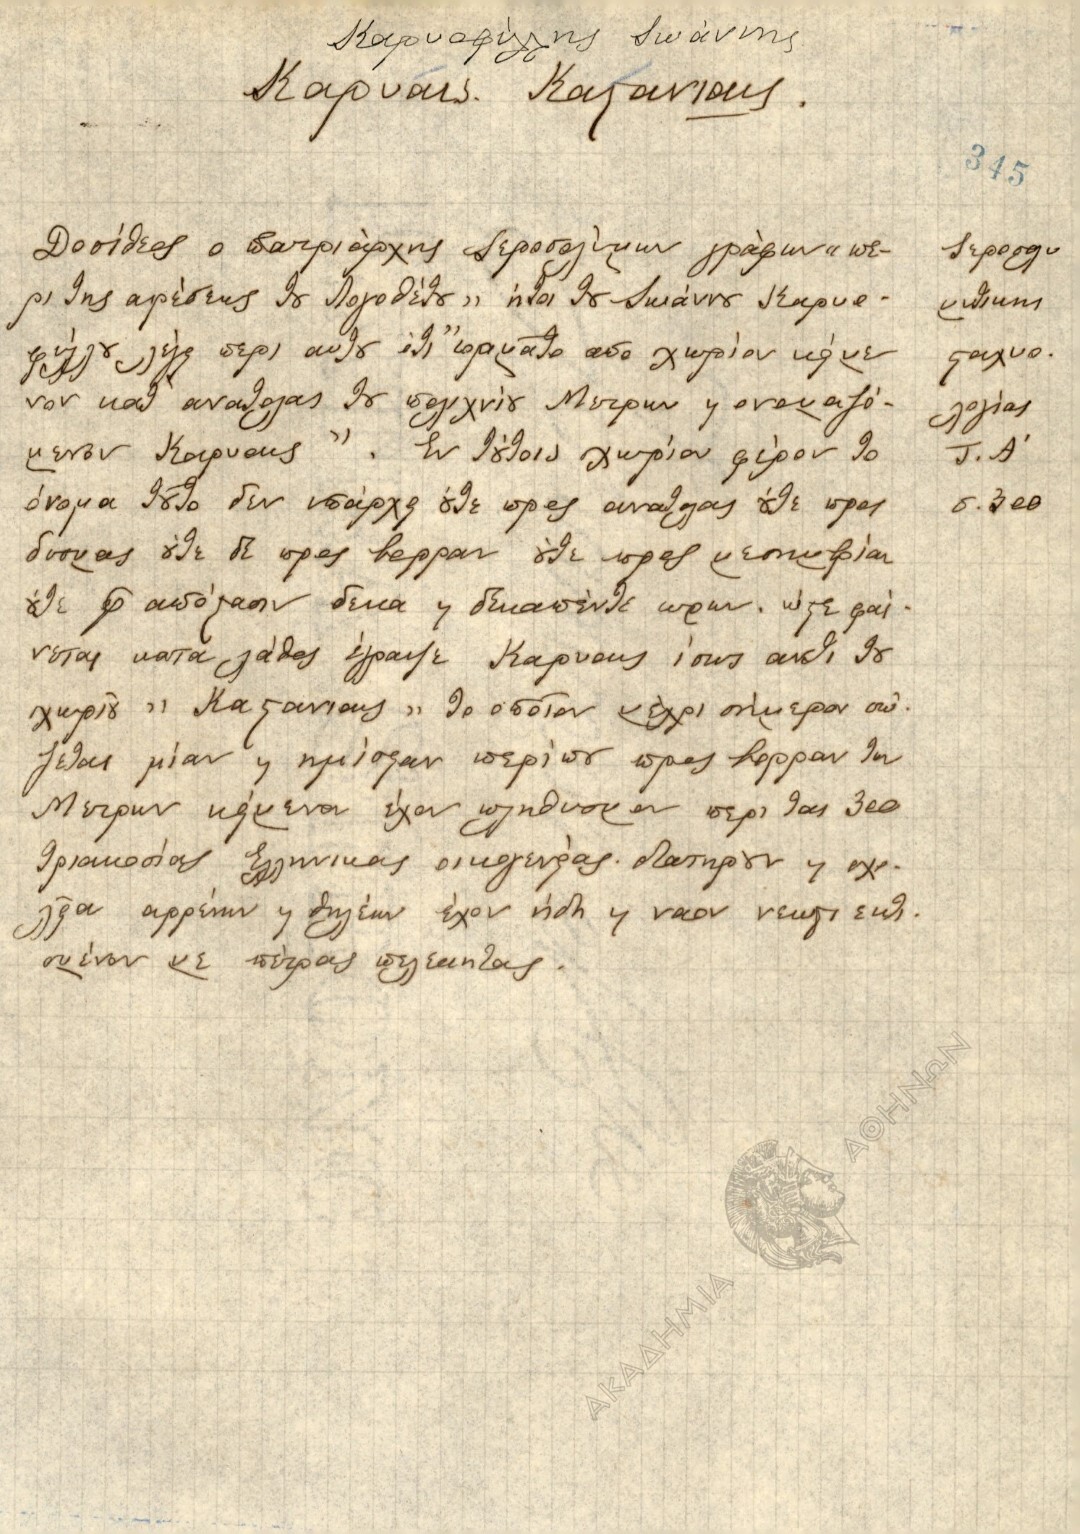 Καρυοφύλλης Ιωάννης
Καρυαις. Καστανιαις.
345
Δοσίθεος ο Πατριάρχης Ιεροσολύμων γράφων « πε-
ρι της αιρέσεως του Λογοθέτου » ήτοι του Ιωάννου Καρυο-
φύλλου λέγει περι αυτου ότι "ωρμάτο απο χωρίον κείμε
νον κατ' ανατολας του πολιχνίου Μετρων και ονομαζό-
μενον Καρυαις ". Εν τούτοις χωρίον φέρον το
όνομα τουτο δεν υπάρχει ούτε προς ανατολας ούτε προς
δυσμας ούτε δε προς βορραν ούτε προς μεσημβρίαν
ούτε εν αποστάσει δεκα και δεκαπέντε ωρων. ώστε φαί-
νεται κατα λάθος έγραψε Καρυαις ίσως αντι του
χωρίου " Καστανιαις " το οποίον μέχρι σήμερον σώ-
ζεται μίαν και ημίσειαν περίπου προς βορραν των
Μετρων κείμενον έχον πληθυσμον περι τας 300
τριακοσίας Ελληνικας οικογενείας. διατηρουν και σχο-
λεία αρρένων και θηλέων έχον ήδη και ναον νεωστι εκτι-
σμένον με πέτρας πελεκητας.
Ιεροσολυ
μιτικης
σταχυο-
λογίας
Τ. Α'
σ. 300
ΑΚΑΔΗΜΙΑ ΑΘΗΝΩΝ